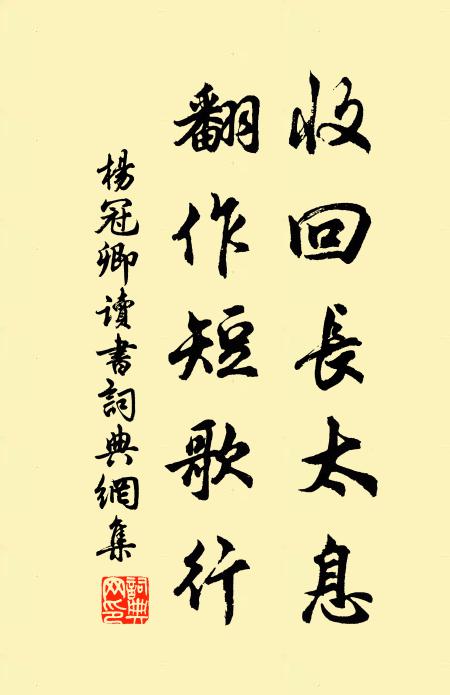 收回長太息
翻作短歌行
楊冠卿讀書詞典網集
詞典網印